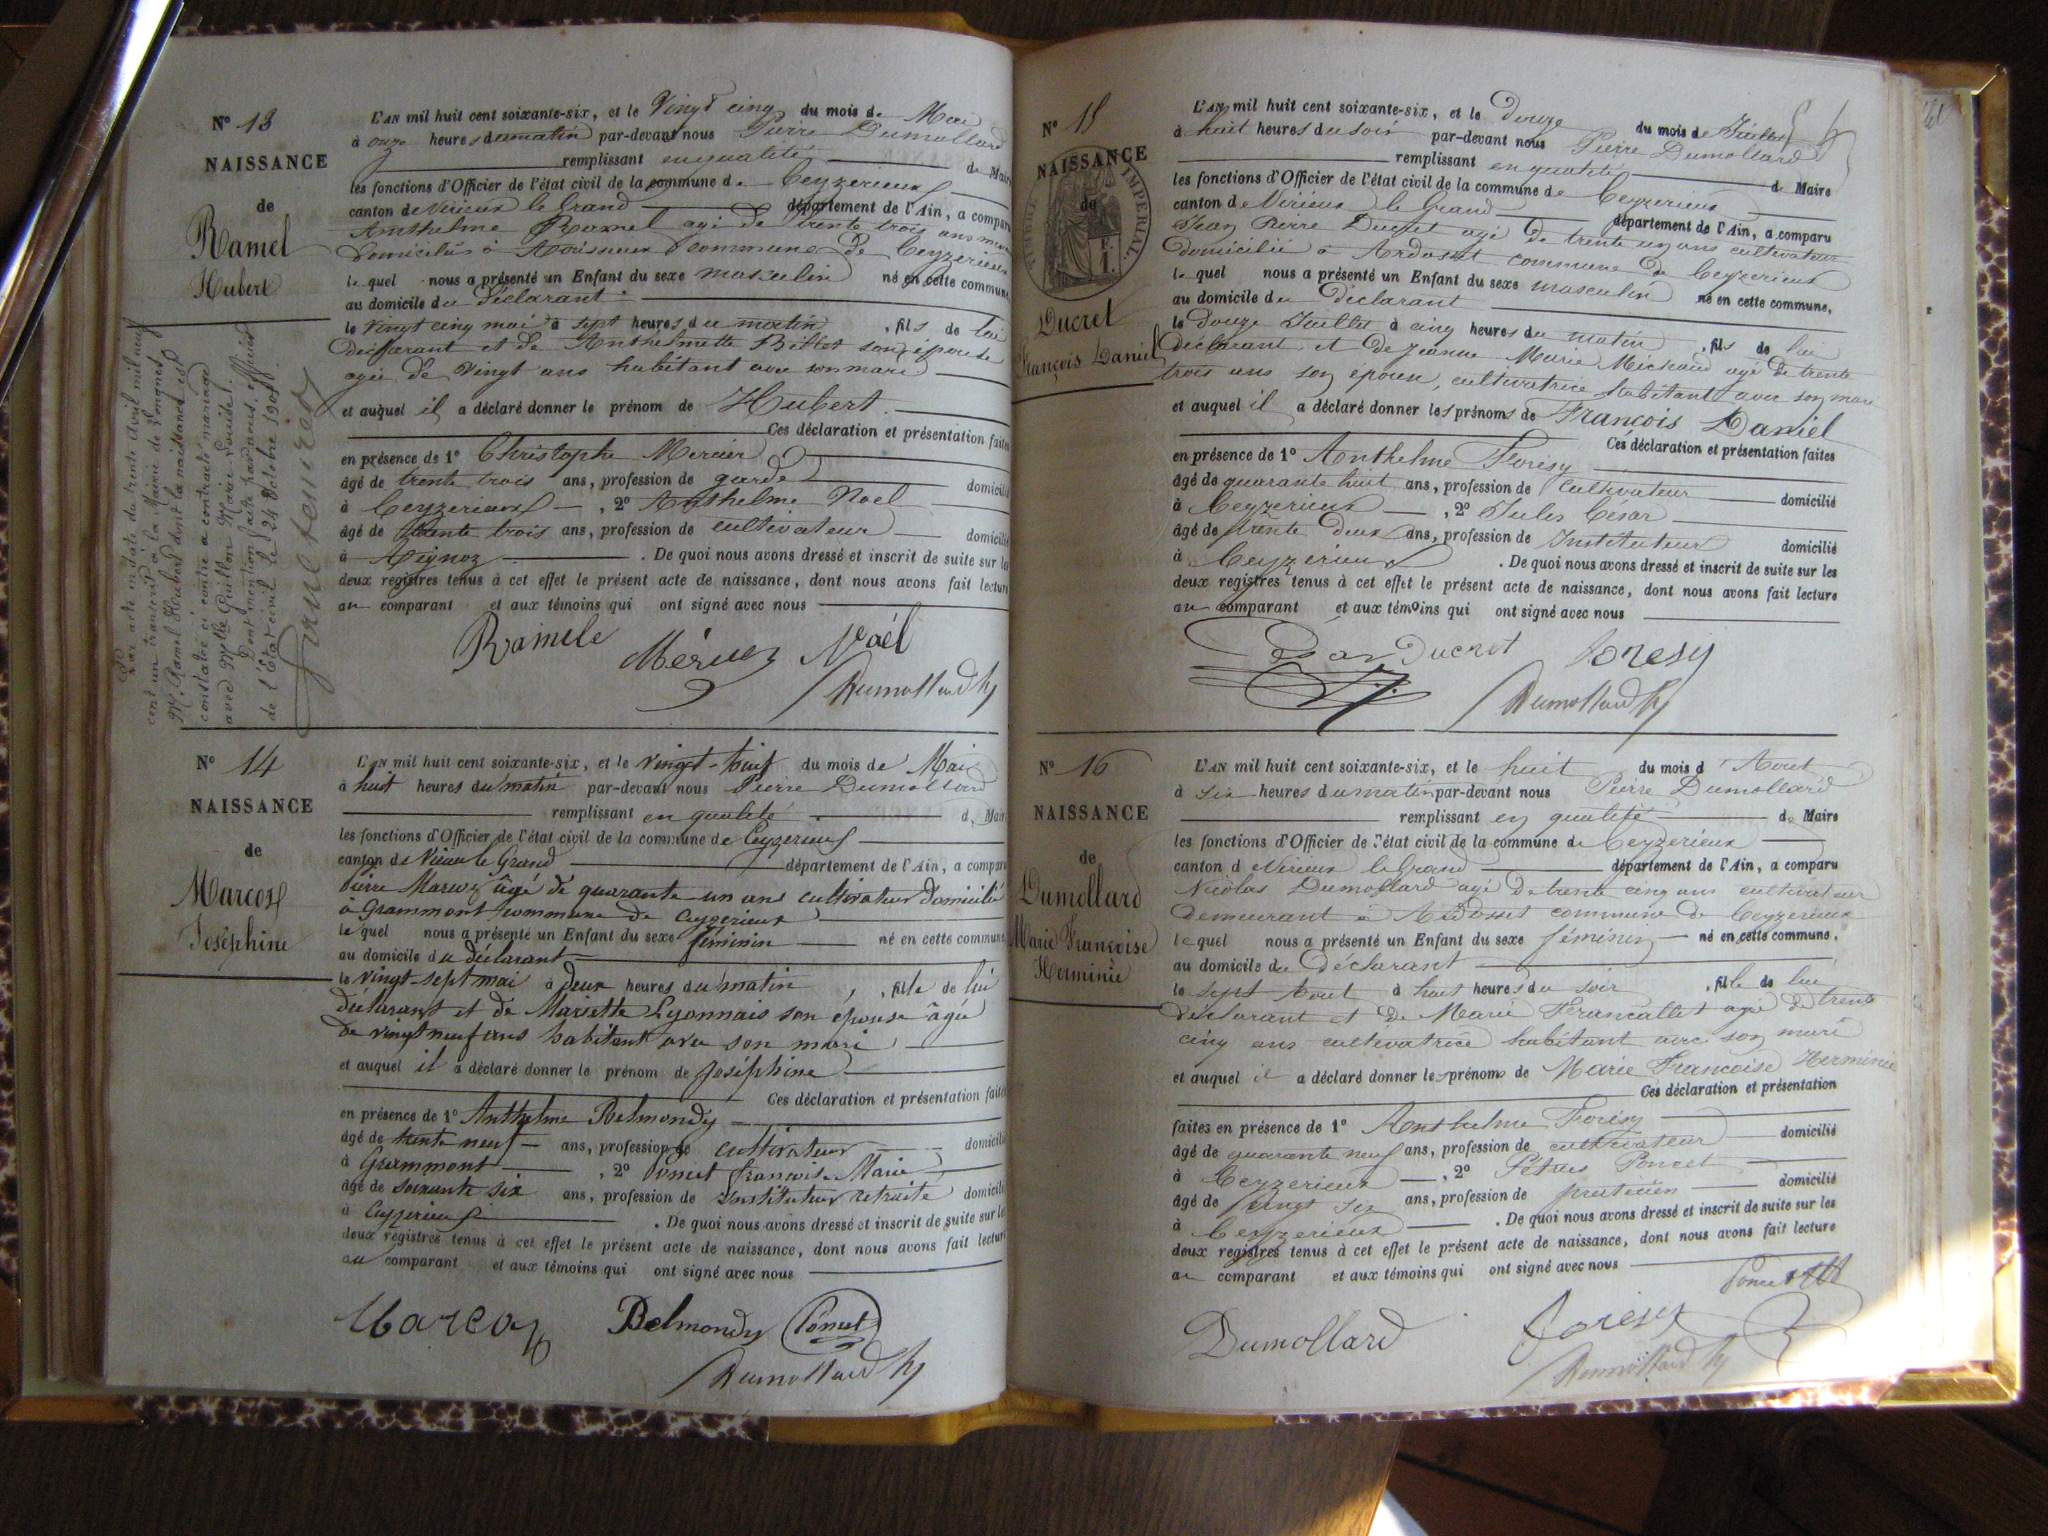 N° 13
NAISSANCE
de
Ramel
Hubert
L'AN mil huit cent soixante-six, et le Vingt cinq du mois de Mai
à onze heures du matin par-devant nous Pierre Dumollard
remplissant en qualité de Maire
les fonctions d'Officier de l'état civil de la commune de Ceyzerieux
canton de Virieux le Grand département de l'Ain, a comparu
Anthelme Ramel agé de trente trois ans
domicilié à commune de Ceyzerieux
le quel nous a présenté un Enfant du sexe masculin né en cette commune,
au domicile du déclarant
le vingt cinq mai à sept heures du matin, fils de lui
déclarant et de Anthelmette Billet son épouse
agée de Vingt ans habitant avec son mari
et auquel il a déclaré donner le prénom de Hubert.
Ces déclaration et présentation faites
en présence de 1° Christophe Mercier
âgé de trente trois ans, profession de garde domicilié
à Ceyzerieux, 2° Anthelme Noel
âgé de trente trois ans, profession de cultivateur domicilié
à Aignoz. De quoi nous avons dressé et inscrit de suite sur les
deux registres tenus à cet effet le présent acte de naissance, dont nous avons fait lecture
au comparant et aux témoins qui ont signé avec nous
Ramel Noël
Dumollard
Par acte en date du trente Avril mil neuf
cent un transcrit à la Mairie de
Mr. Ramel Hubert dont la naissance est
constatée ci contre a contracté mariage
avec Melle Guillon Marie Louise.
Dont mention faite par nous, officier
de l'État civil le 24 Octobre 1905.
N° 14
NAISSANCE
de
Marcoz
Joséphine
L'AN mil huit cent soixante-six, et le vingt-huit du mois de Mai
à huit heures du matin par-devant nous Pierre Dumollard
remplissant en qualité de Maire
les fonctions d'Officier de l'état civil de la commune de Ceyzerieux
canton de Virieu le Grand département de l'Ain, a comparu
Pierre Marcoz âgé de quarante un ans cultivateur domicilié
à Grammont commune de Ceyzerieux
le quel nous a présenté un Enfant du sexe féminin né en cette commune,
au domicile du déclarant
le vingt-sept mai à deux heures du matin, fille de lui
déclarant et de Mariette Lyonnais son épouse âgée
de vingt neuf ans habitant avec son mari
et auquel il a déclaré donner le prénom de Joséphine
Ces déclaration et présentation faites
en présence de 1° Anthelme Belmondy
âgé de trente neuf ans, profession de cultivateur domicilié
à Grammont, 2° Poncet françois Marie
âgé de soixante six ans, profession de Instituteur retraité domicilié
à Ceyzerieux. De quoi nous avons dressé et inscrit de suite sur les
deux registres tenus à cet effet le présent acte de naissance, dont nous avons fait lecture
au comparant et aux témoins qui ont signé avec nous
Marcoz Belmondy Poncet
Dumollard
N° 15
NAISSANCE
de
TIMBRE IMPERIAL
Ducret
François Daniel
L'AN mil huit cent soixante-six, et le douze du mois de Juillet
à huit heures du soir par-devant nous Pierre Dumollard
remplissant en qualité de Maire
les fonctions d'Officier de l'état civil de la commune de Ceyzerieux
canton de Virieux le Grand département de l'Ain, a comparu
Jean Pierre Ducret agé de trente un ans cultivateur
domicilié à Ardosset commune de Ceyzerieux
le quel nous a présenté un Enfant du sexe masculin né en cette commune,
au domicile du déclarant
le douze Juillet à cinq heures du matin, fils de lui
déclarant et de Jeanne Marie Michaud agé de trente
trois ans son epouse, cultivatrice habitant avec son mari
et auquel il a déclaré donner les prénoms de François Daniel
Ces déclaration et présentation faites
en présence de 1° Anthelme Forisy
âgé de quarante huit ans, profession de cultivateur domicilié
à Ceyzerieux, 2° Jules César
âgé de trente deux ans, profession de Instituteur domicilié
à Ceyzerieux. De quoi nous avons dressé et inscrit de suite sur les
deux registres tenus à cet effet le présent acte de naissance, dont nous avons fait lecture
au comparant et aux témoins qui ont signé avec nous
César Ducret Foresy
Dumollard
N° 16
NAISSANCE
de
Dumollard
Marie Françoise
Herminie
L'AN mil huit cent soixante-six, et le huit du mois d'Aout
à six heures du matin par-devant nous Pierre Dumollard
remplissant en qualité de Maire
les fonctions d'Officier de l'état civil de la commune de Ceyzerieux
canton de Virieux le Grand département de l'Ain, a comparu
Nicolas Dumollard agé de trente cinq ans cultivateur
demeurant à Ardosset commune de Ceyzerieux
le quel nous a présenté un Enfant du sexe féminin né en cette commune,
au domicile du déclarant
le sept Aout à huit heures du soir, fille de lui
déclarant et de Marie Francallet agé de trente
cinq ans cultivatrice habitant avec son mari
et auquel il a déclaré donner les prénoms de Marie Francoise Herminie
Ces déclaration et présentation
faites en présence de 1° Anthelme Forisy
âgé de quarante neuf ans, profession de cultivateur domicilié
à Ceyzerieux, 2° Pétrus Poncet
âgé de vingt six ans, profession de praticien domicilié
à Ceyzerieux. De quoi nous avons dressé et inscrit de suite sur les
deux registres tenus à cet effet le présent acte de naissance, dont nous avons fait lecture
au comparant et aux témoins qui ont signé avec nous
Poncet
Dumollard Foresy
Dumollard